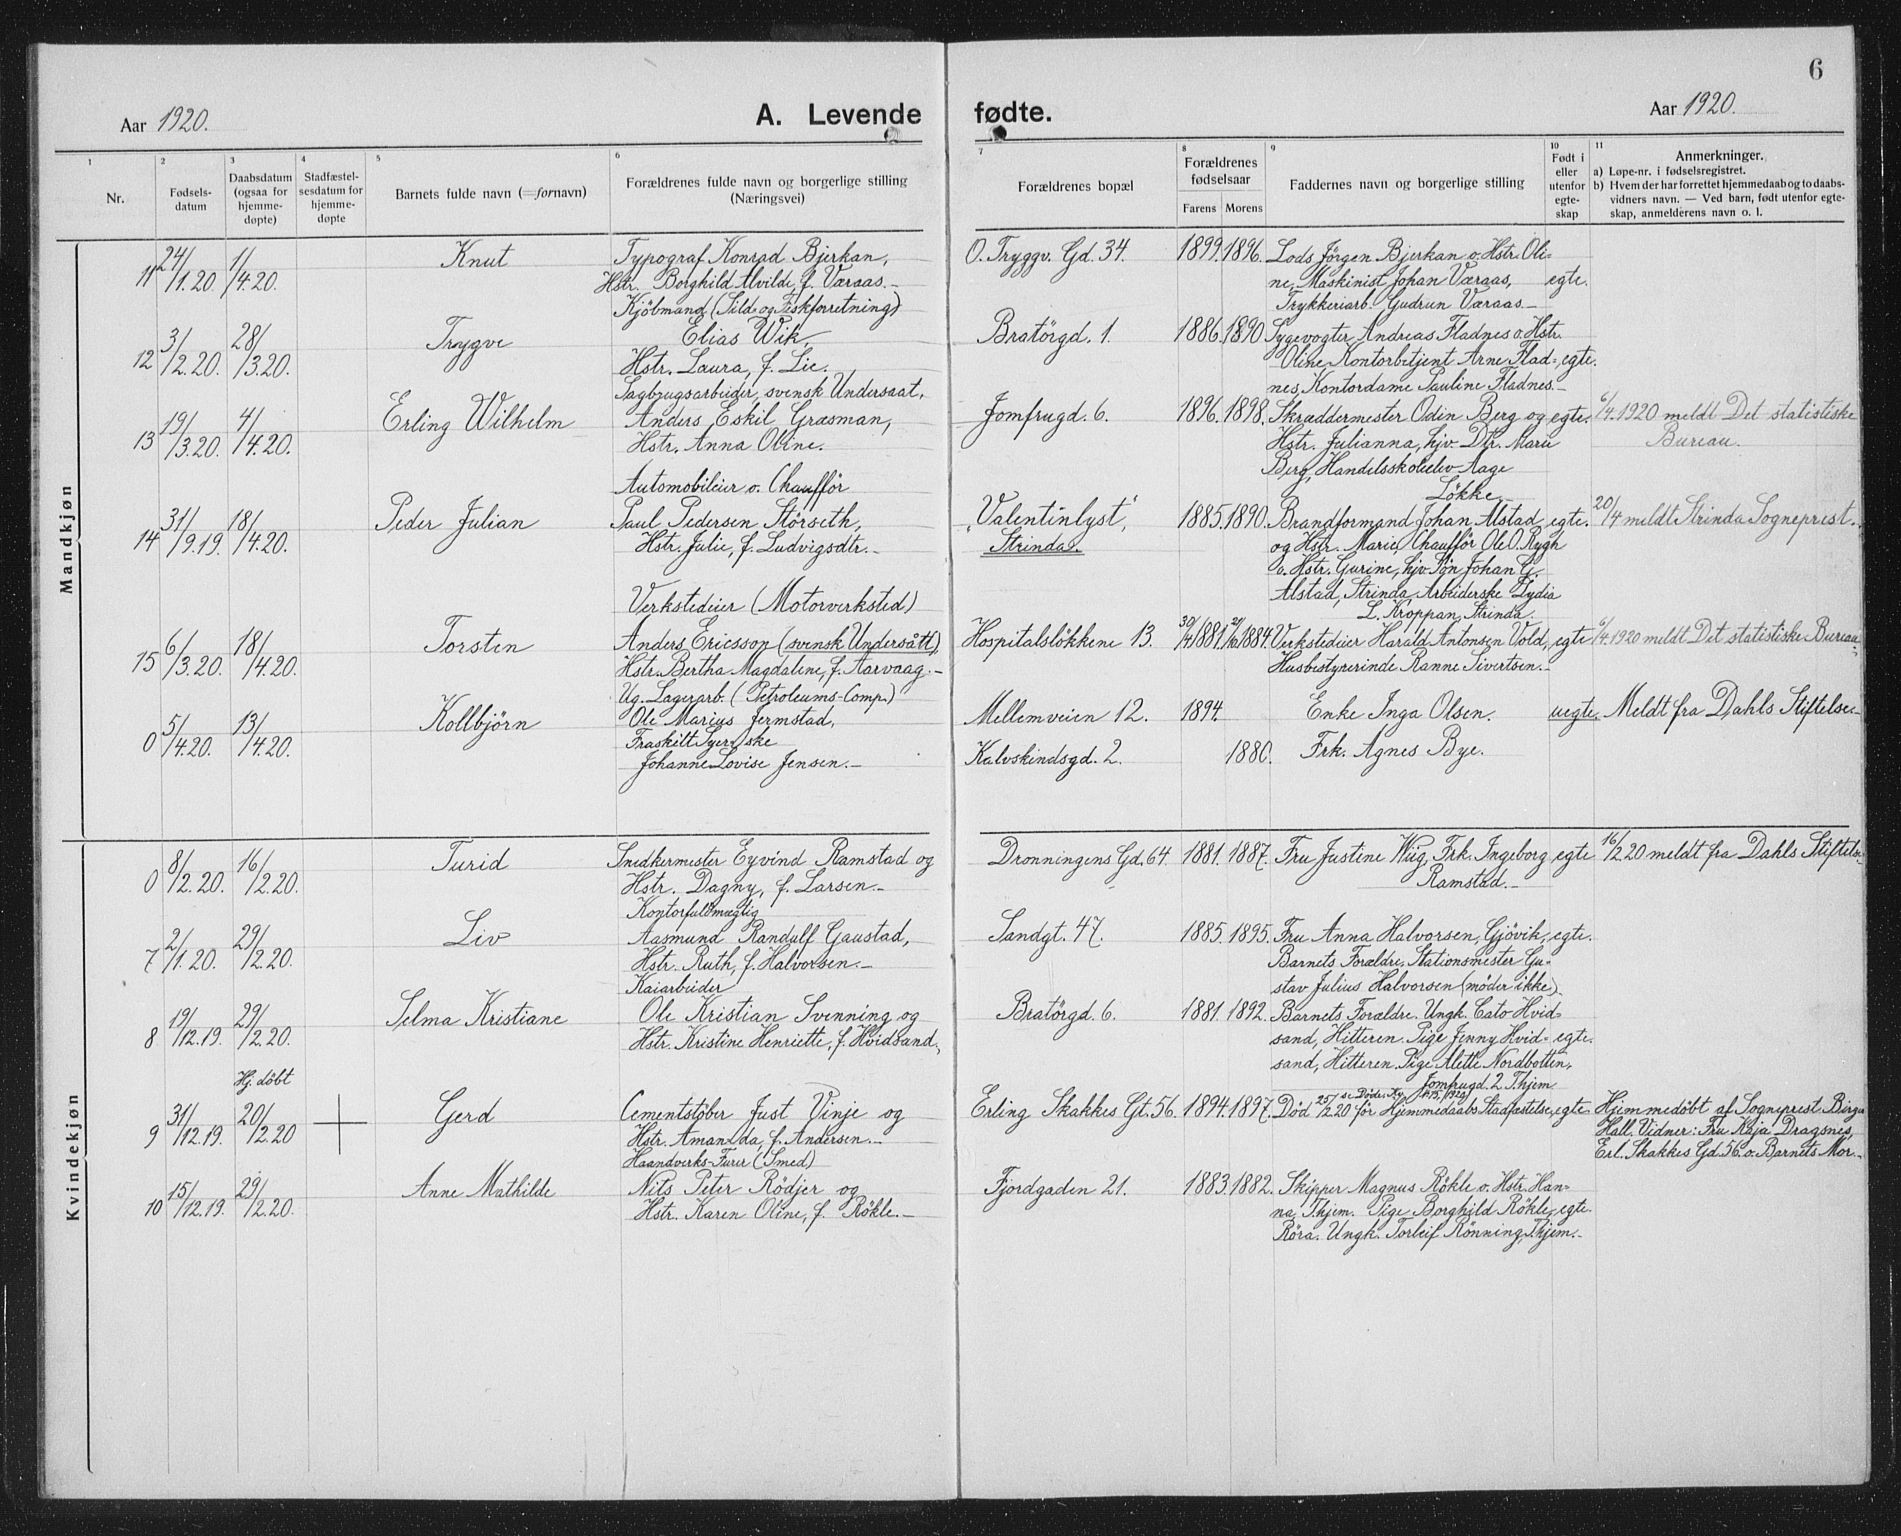 6
Aar 1920.
A. Levende fødte.
Aar 1920.
1 Nr.
2 Fødsels-datum
3 Daabsdatum (ogsaa for hjemme-døpte)
4 Stadfæstel-sesdatum for hjemme-døpte
5 Barnets fulde navn (=fornavn)
6 Forældrenes fulde navn og borgerlige stilling (Næringsvei)
7 Forældrenes bopæl
8 Forældrenes fødselsaar
Farens Morens
9 Faddernes navn og borgerlige stilling
10 Født i eller utenfor egte-skap
11 Anmerkninger.
a) Løpe-nr. i fødselsregistret.
b) Hvem der har forrettet hjemmedaab og to daabs-
vidners navn. — Ved barn, født utenfor egte-
skap, anmelderens navn o. l.
Mandkjøn
11 24/1.20 1/4.20. Knut
Typograf Konrad Bjerkan,
Hstr. Borghild Alvilde, f. Væraas.-
O. Tryggv. Gd. 34. 1899. 1896.
Lods Jörgen Bjerkan o. Hstr. Oli=
ne, Maskinist Johan Væraas, egte.
Trykkeriarb. Gudrun Væraas.-
12 3/2.20. 28/3.20. Trygve
Kjöbmand (Sild- og Fiskforretning)
Elias Wik,
Hstr. Laura, f. Lie.
Bratörgd. 1. 1886. 1890.
Sygevogter Andreas Fladnes o. Hstr.
Oline, Kontorbetjent Arne Flad=, egte.
nes, Kontordame Pauline Fladnes.-
13 19/3.20. 4/4.20. Erling Wilhelm
Sagbrugsarbeider, svensk Undersaat,
Anders Eskil Græsman,
Hstr. Anna Oline.
Jomfrugd. 6. 1896. 1898.
Skræddermester Odin Berg og egte.
Hstr. Julianna, hjv. Dtr. Marie
Berg, Handelsskoleelev Aage
Lökke.-
6/4.1920 meldt Det statistiske
Bureau.
14 31/9.19. 18/4.20. Peder Julian
Automobileier o. Chaufför
Paul Pedersen Störseth,
Hstr. Julie, f. Ludvigsdtr.-
"Valentinlyst",
Strinda. 1885. 1890.
Brandformand Johan Alstad egte.
og Hstr. Marie, Chaufför Ole O. Rygh
o. Hstr. Gurine, hjv. Sön Johan G.
Alstad, Strinda, Arbeiderske Lydia
L. Kroppan, Strinda.
20/4 meldt Strinda Sogneprest.
15 6/3.20. 18/4.20. Torsten
Verkstedeier (Motorverksted)
Anders Ericsson (svensk Undersått)
Hstr. Bertha Magdalene, f. Aarvaag.-
Hospitalslökkene 13. 30/4 1881. 1884.
Verkstedeier Harald Antonsen Vold, egte
Husbestyrerinde Ranne Sivertsen.-
6/4.1920 meldt Det statistiske Bureau.
0 5/4.20. 13/4.20. Kollbjörn
Ug. Lagerarb. (Petroleums-Comp.)
Ole Marius Jermstad,
Fraskilt Syerske
Johanne Lovise Jensen.-
Mellemveien 12. 1894.
Kalvskindsgd. 2. 1880.
Enke Inga Olsen. uegte.
Frk. Agnes Bye.
Meldt fra Dahls Stiftelse.-
Kvindekjøn
0 8/2.20. 16/2.20. Turid
Snedkermester Eyvind Ramstad og
Hstr. Dagny, f. Larsen.-
Dronningens Gd. 64. 1881. 1887.
Fru Justine Wiig, Frk. Ingeborg egte
Ramstad.-
16/2.20 meldt fra Dahls Stiftelse.
7 2/1.20. 29/2.20. Liv
Kontorfuldmægtig
Aasmund Randulf Gaustad,
Hstr. Ruth, f. Halvorsen.-
Sandgt. 47. 1885. 1895.
Fru Anna Halvorsen, Gjövik, egte.
Barnets Forældre, Stationsmester Gu=
stav Julius Halvorsen (möder ikke).
8 19/12.19. 29/2.20. Selma Kristiane
Kaiarbeider
Ole Kristian Svenning og
Hstr. Kristine Henriette, f. Hvidsand.
Bratörgd. 6. 1881. 1892.
Barnets Forældre. Ungk. Cato Hvid=
sand, Hitteren. Pige Jenny Hvid= egte.
sand, Hitteren. Pige Alette Nordbotten,
Jomfrugd. 2 Thjem
9 31/12.19. Hj. döbt 20/2.20 Gerd
Cementstöber Just Vinje og
Hstr. Amanda, f. Andersen.-
Erling Skakkes Gt. 56. 1894. 1897.
Död 25/2.20 för Hjemmedaabs Stadfæstelse, egte.
Hjemmedöbt af Sogneprest Birger
Hall. Vidner: Fru Kaja Dragsnes,
Erl. Skakkes Gd. 56 o. Barnets Mor.-
10 15/12.19. 29/2.20. Anne Mathilde
Haandverks-Furer (Smed)
Nils Peter Rödjer og
Hstr. Karen Oline, f. Rökle.-
Fjordgaden 21. 1883. 1882.
Skipper Magnus Rökle o. Hstr. Han=
na, Thjem. Pige Borghild Rökle, egte.
Röra. Ungk. Torleif Rönning, Thjem.-